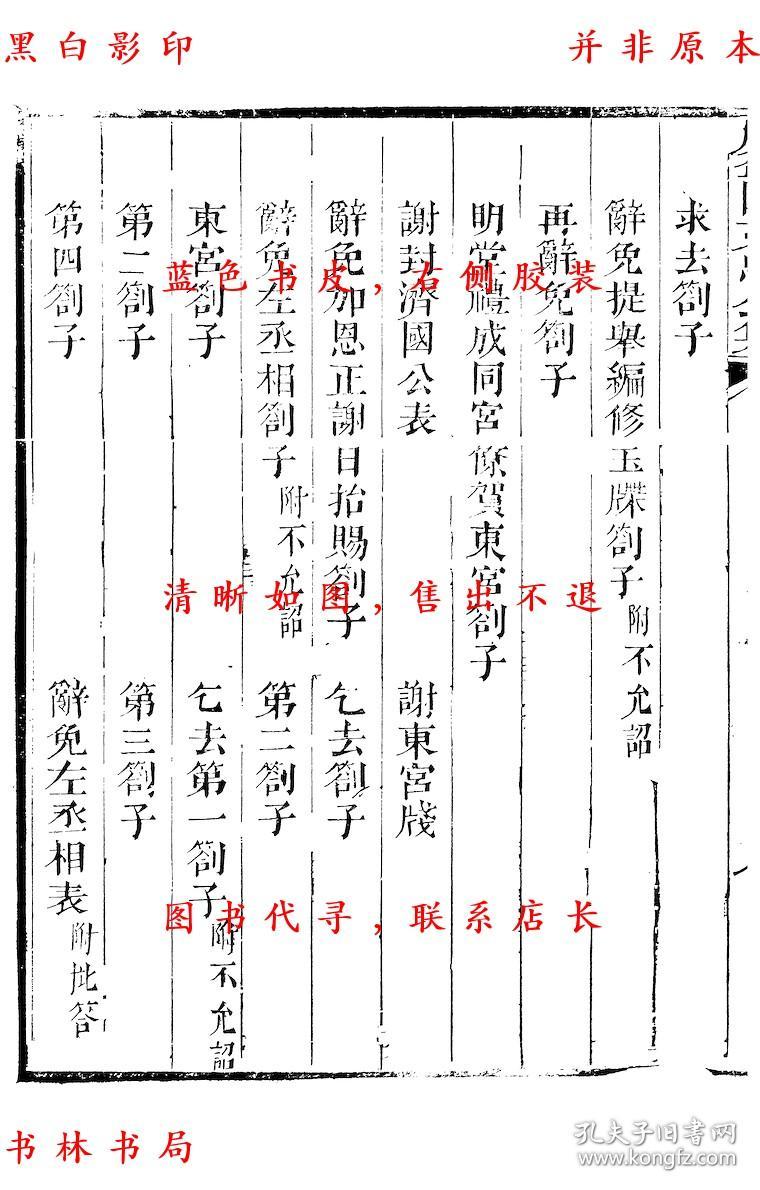 黑白影印
并非原本
求去劄子
辭免提舉編修玉牒劄子 附不允詔
再辭免劄子
明堂禮成同宮僚賀東宮劄子
謝封濟國公表 謝東宮牋
辭免加恩正謝日抬賜劄子 乞去劄子
辭免左丞相劄子 附不允詔 第二劄子
東宮劄子 乞去第一劄子 附不允詔
第二劄子 第三劄子
第四劄子 辭免左丞相表 附批答
蓝色书皮,右侧胶装
清晰如图,售出不退
图书代寻,联系店长
书林书局
孔夫子旧书网
www.kongfz.com